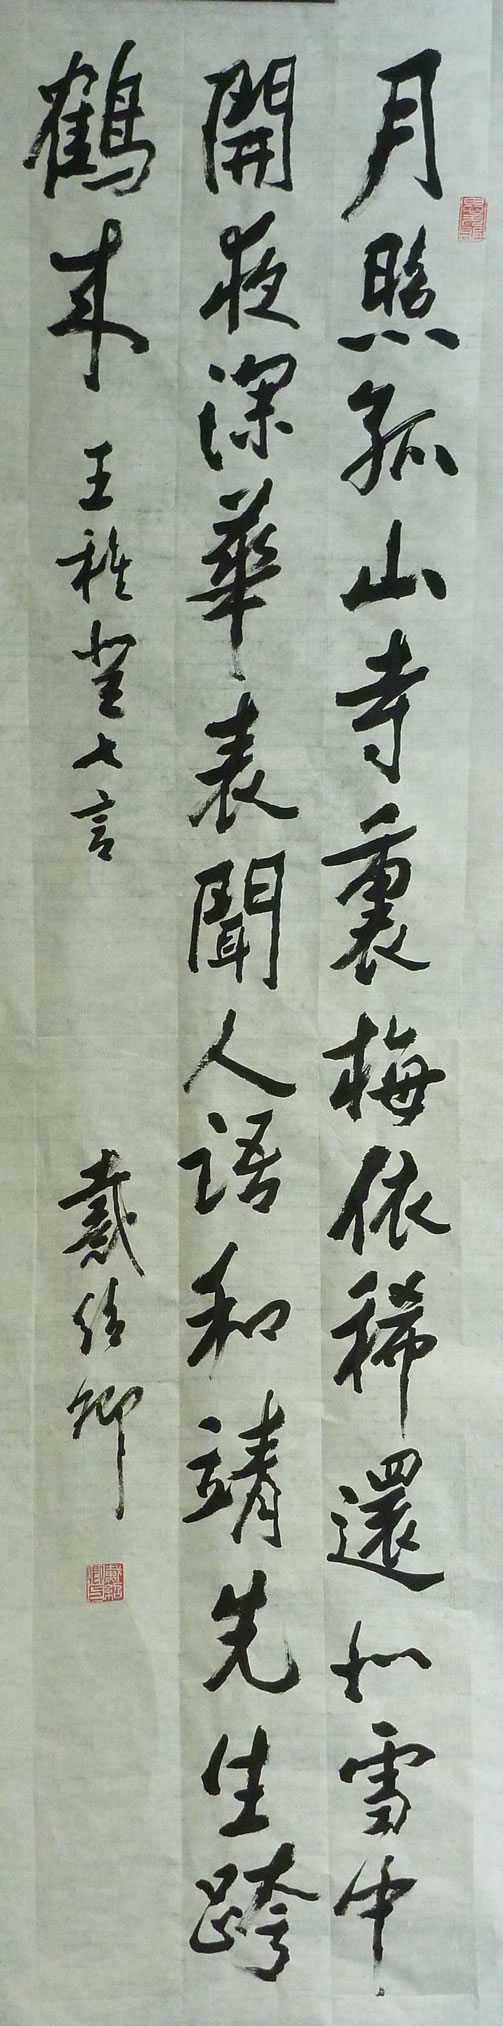 月照孤山寺裏梅依稀還似雪中
開夜深華表聞人語和靖先生跨
鶴來 王稚登七言
戴紹卿
戴紹卿印